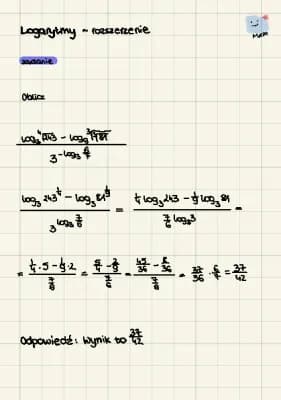 Logarytmy - rozszerzenie
Mem
zadanie
Oblicz
log₃ ⁴√243 - log₉ ³√³√81
3^(-log₃ 6/7)
log₃ 243^(1/4) - log₉ 81^(1/9) / 3^(log₃ 7/6) = 1/4 log₃ 243 - 1/9 log₉ 81 / 7/6 log₃ 3 =
= 1/4 · 5 - 1/9 · 2 / 7/6 = 5/4 - 2/9 / 7/6 = 45/36 - 8/36 / 7/6 = 37/36 · 6/7 = 37/42
Odpowiedź: Wynik to 37/42